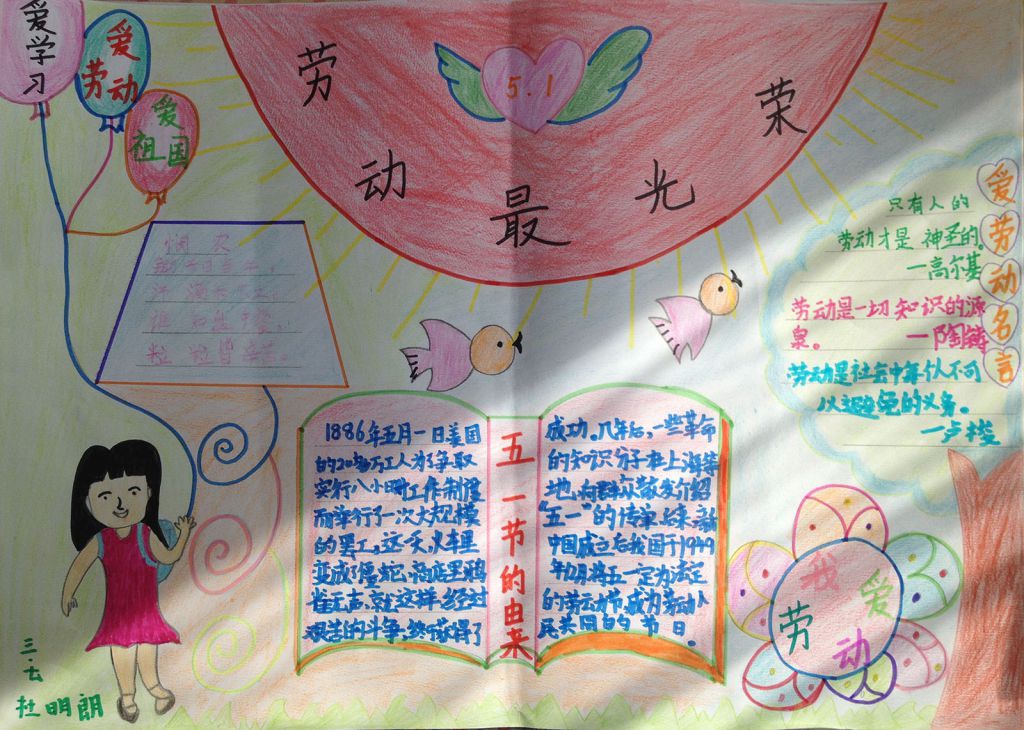 爱学习
爱劳动
爱祖国
劳动最光荣
5.1
悯农
汗滴
粒粒皆辛苦。
爱劳动名言
只有人的
劳动才是神圣的。
—高尔基
劳动是一切知识的源
泉。—陶铸
劳动是社会中每个人不可
以避免的义务。
—卢梭
五一节的由来
1886年五月一日美国
的20多万工人为了争取
实行八小时工作制度
而举行了一次大规模
的罢工。这一天,火车里
变成了僵蛇,商店里鸦
雀无声,就这样,经过
艰苦的斗争,终于获得了
成功。几年后,一些革命
的知识分子在上海等
地,向群众散发介绍
"五一"的传单,后来,新
中国成立后我国于1949
年12月将五一定为法定
的劳动节,成为劳动人
民共同的节日。
我爱
劳动
三.七
杜明朗